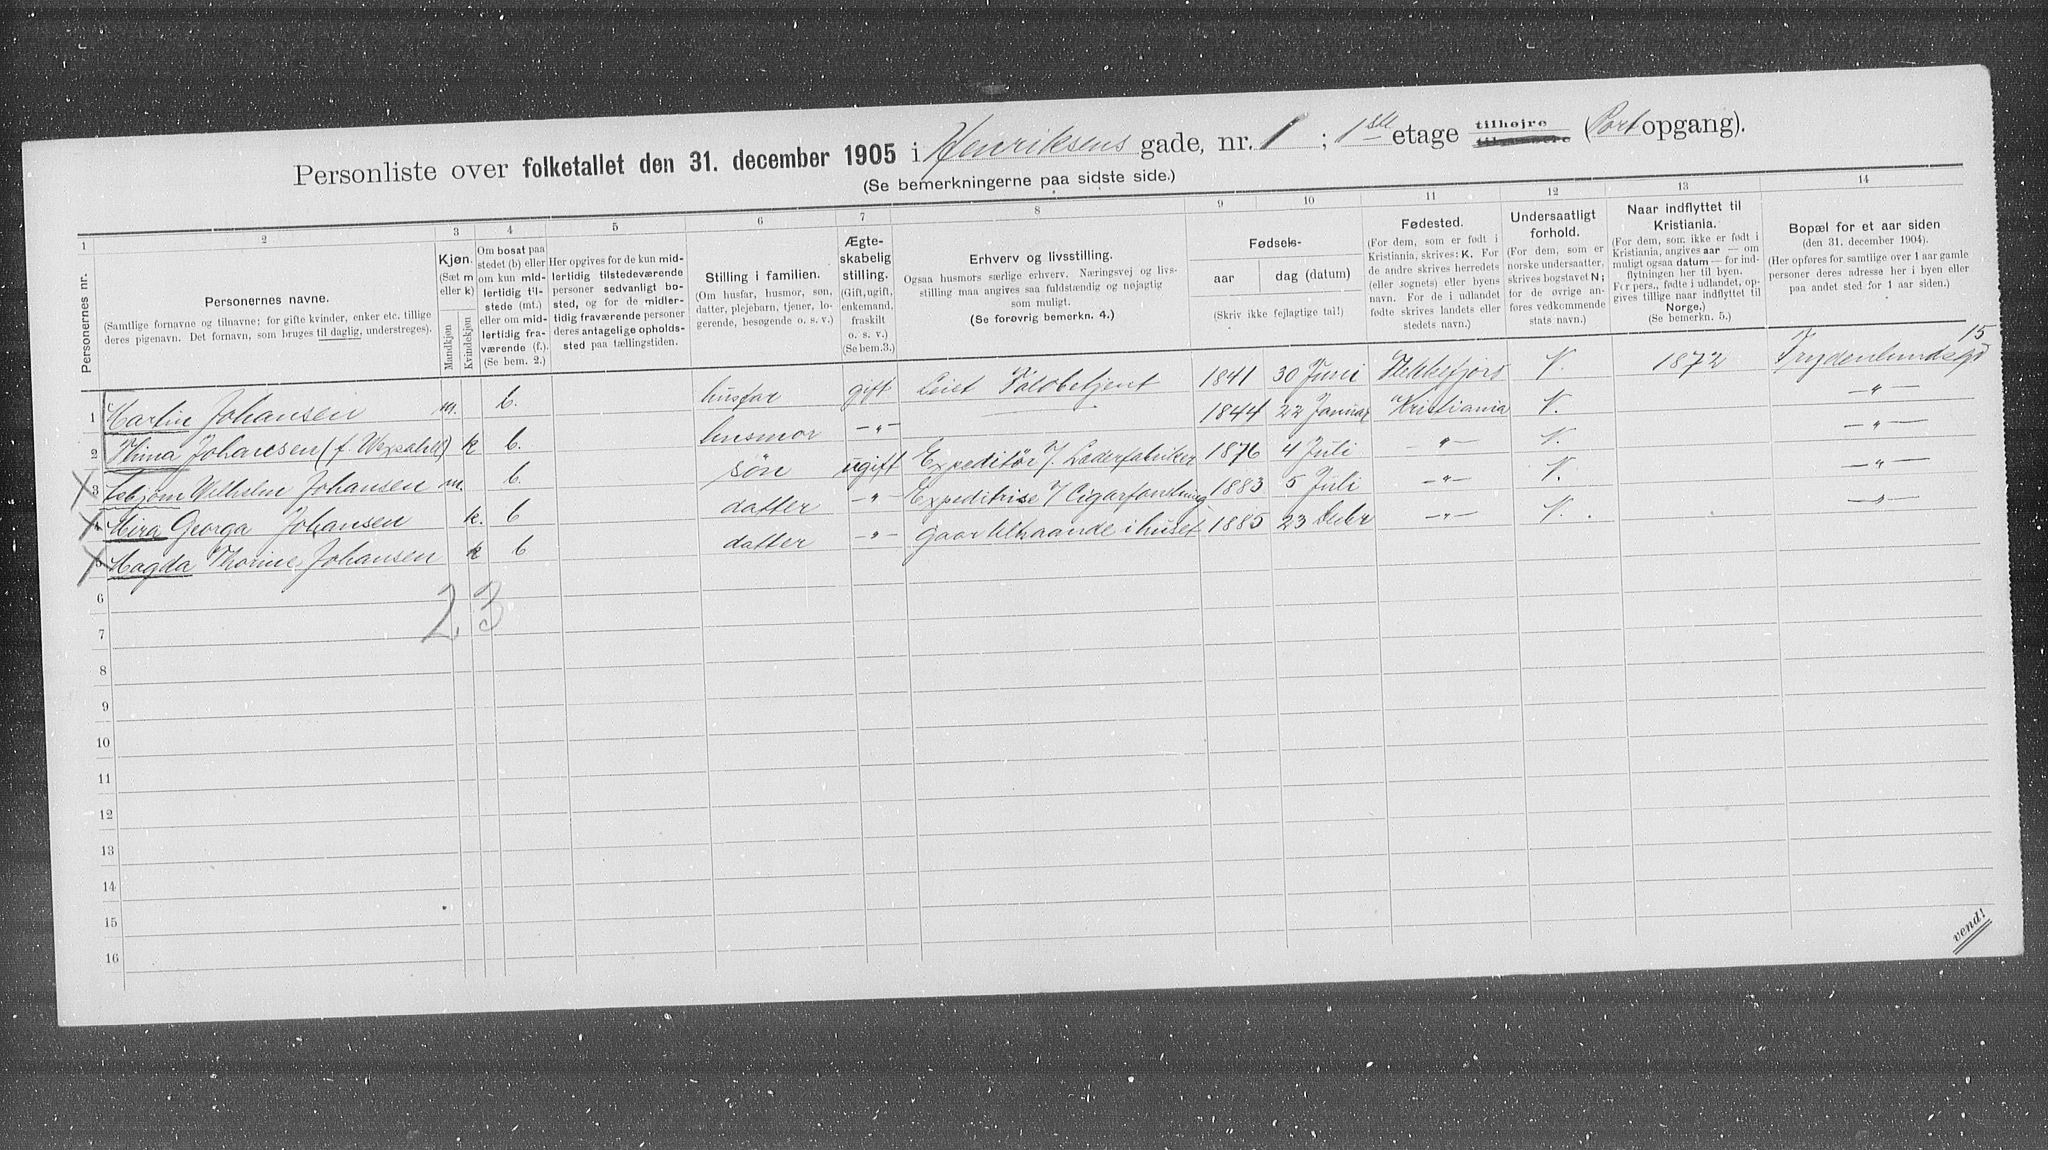 Personliste over folketallet den 31. december 1905 i Henriksens gade, nr. 1 ; 1ste etage tilhøjre (Port opgang).
(Se bemerkningerne paa sidste side.)
1 2 3 4 5 6 7 8 9 10 11 12 13 14
Personernes nr.
Personernes navne.
(Samtlige fornavne og tilnavne; for gifte kvinder, enker etc. tillige
deres pigenavn. Det fornavn, som bruges til daglig, understreges).
Kjøn.
(Sæt m
eller k)
Mandkjøn
Kvindekjøn
Om bosat paa
stedet (b) eller
om kun mid-
lertidig til-
stede (mt.)
eller om mid-
lertidig fra-
værende (f.)
(Se bem. 2.)
Her opgives for de kun mid-
lertidig tilstedeværende
personer sedvanligt bo-
sted, og for de midler-
tidig fraværende personer
deres antagelige opholds-
sted paa tællingstiden.
Stilling i familien.
(Om husfar, husmor, søn,
datter, plejebarn, tjener, lo-
gerende, besøgende o. s. v.)
Ægte-
skabelig
stilling.
(Gift, ugift,
enkemand,
fraskilt
o. s. v.)
(Se bem. 3.)
Erhverv og livsstilling.
Ogsaa husmors særlige erhverv. Næringsvej og livs-
stilling maa angives saa fuldstændig og nøjagtig
som muligt.
(Se forøvrig bemerkn. 4.)
Fødsels-
aar dag (datum)
(Skriv ikke fejlagtige tal!)
Fødested.
(For dem, som er født i
Kristiania, skrives: K. For
de andre skrives herredets
(eller sognets) eller byens
navn. For de i udlandet
fødte skrives landets eller
stedets navn.)
Undersaatligt
forhold.
(For dem, som er
norske undersaatter,
skrives bogstavet N;
for de øvrige an-
føres vedkommende
stats navn.)
Naar indflyttet til
Kristiania.
(For dem, som ikke er født i
Kristiania, angives aar — om
muligt ogsaa datum — for ind-
flytningen her til byen.
For pers., fødte i udlandet, op-
gives tillige naar indflyttet til
Norge.)
(Se bemerkn. 5.)
Bopæl for et aar siden
(den 31. december 1904).
(Her opføres for samtlige over 1 aar gamle
personer deres adresse her i byen eller
paa andet sted for 1 aar siden.)
1 Martin Johansen m. b. husfar gift Toldbetjent 1841 30 Juni Flekkefjors N. 1872 Frydenlundsgd 15
2 Thina Johansen (f. ) k b. husmor —„— 1844 22 Januar Kristiania N. —„—
3 Wilhelm Johansen m. b. søn ugift Expeditør i/ Læderfabriker 1876 4 Juli —„— N. —„—
4 Georga Johansen k. b datter —„— Expeditrise i/ 1883 5 Juli —„— N. —„—
5 Magda Thorine Johansen k b datter —„— gaar tilhaande i huset 1885 23 Decbr —„— N. —„—
6
2 3
7
8
9
10
11
12
13
14
15
16
vend!